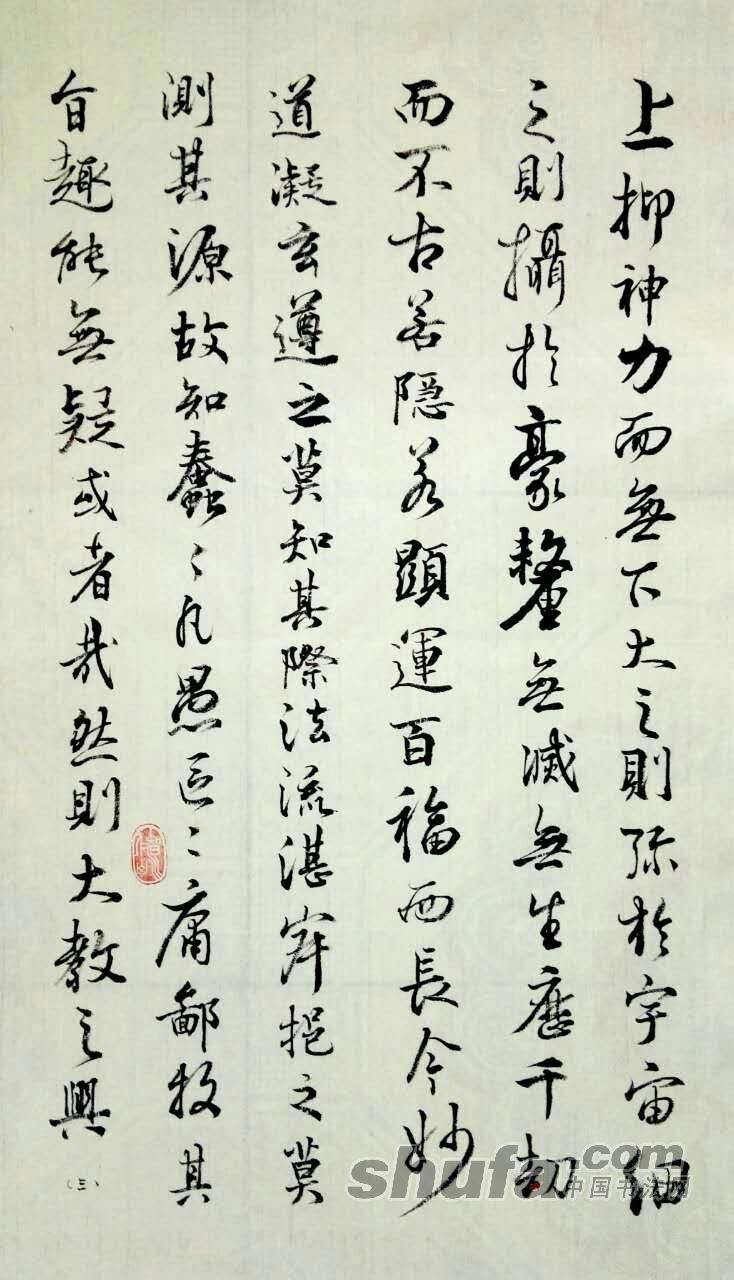 上抑神力而無下大之則弥於宇宙細
之則攝於豪釐無滅無生歷千劫
而不古若隱若顯運百福而長今妙
道凝玄遵之莫知其際法流湛寂挹之莫
測其源故知蠢〻凡愚區〻庸鄙投其
旨趣能無疑或者哉然則大教之興
（三）
shufa.com
中国书法网